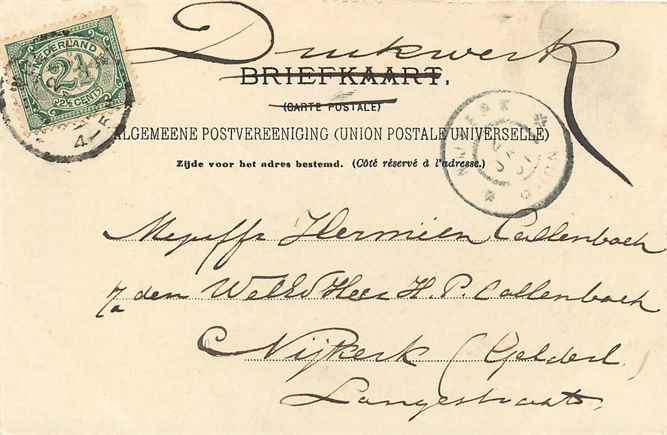 NEDERLAND
2½
(2½ CENT)
Drukwerk
BRIEFKAART.
(CARTE POSTALE)
ALGEMEENE POSTVEREENIGING (UNION POSTALE UNIVERSELLE)
Zijde voor het adres bestemd. (Côté réservé à l'adresse.)
Mejuffr Hermien Callenbach
p/a den WelEd Heer H. P. Callenbach
Nijkerk (Gelderl.)
Langestraat